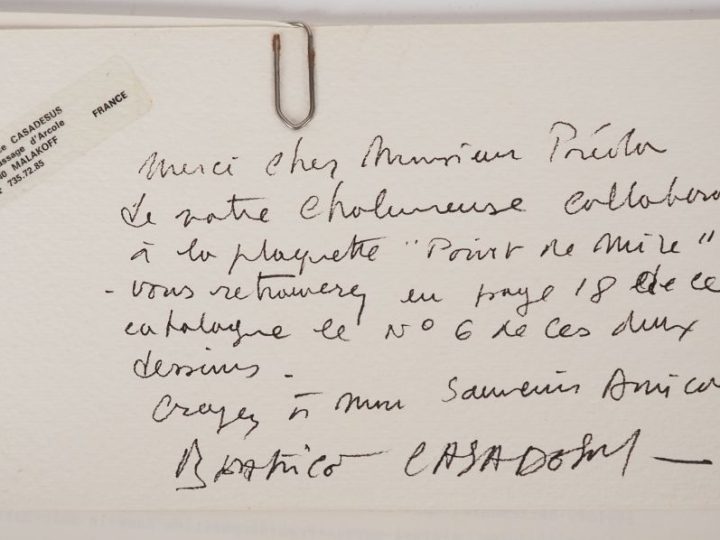 ce CASADESUS
assage d'Arcole
MALAKOFF
735.72.85
FRANCE
Merci cher Monsieur
de votre chaleureuse collabora
à la plaquette "Point de Mire"
- vous retrouverez en page 18 de ce
catalogue le N° 6 de ces deux
dessins -
Croyez à mon souvenir Amica
Béatrice CASADESUS